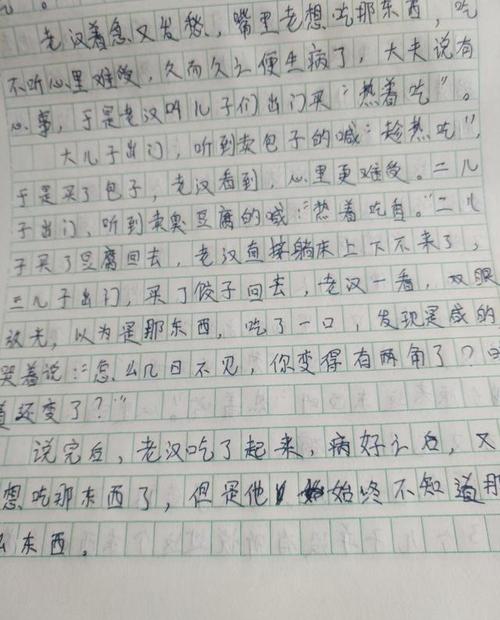 老汉着急又发愁，嘴里老想吃那东西，吃
不听心里难受，久而久之便生病了，大夫说有
心事，于是老汉叫儿子们出门买“热着吃”。
大儿子出门，听到卖包子的喊：“趁热吃”，
于是买了包子，老汉看到，心里更难受。二儿
子出门、听到卖臭豆腐的喊：“热着吃香。”二儿
子买了豆腐回去，老汉直接躺床上下不来了，
三儿子出门，买了饺子回去，老汉一看，双眼
放光，以为是那东西，吃了一口，发现是咸的
哭着说：“怎么几日不见，你变得有两角了？
还变了？”
说完后，老汉吃了起来，病好之后，又
想吃那东西了，但是他始终不知道那
么东西。